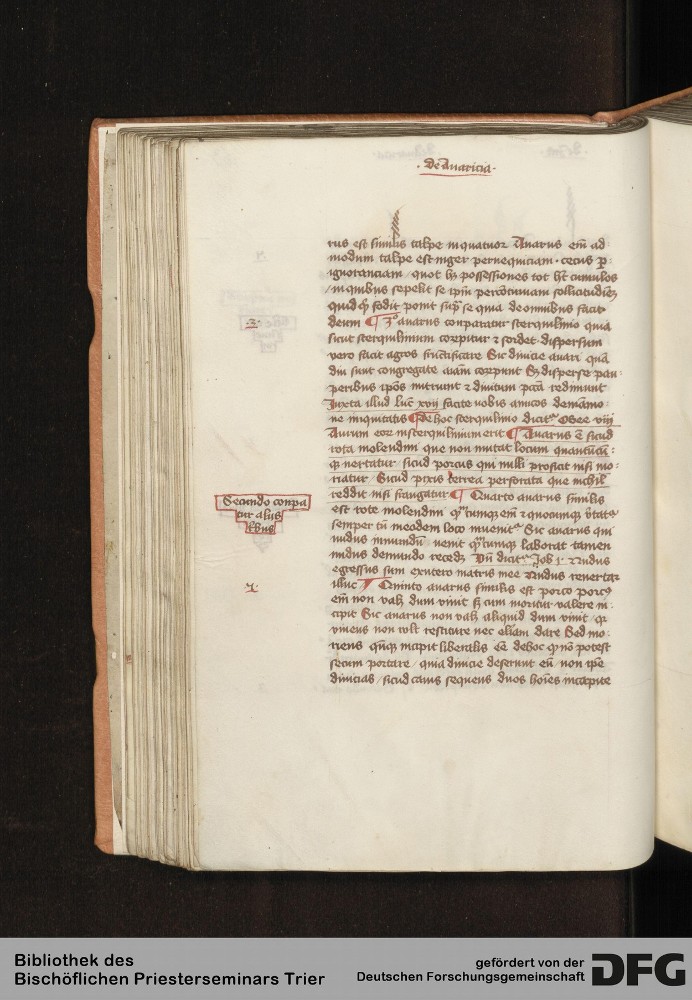 · de Auaricia ·
rus est similis talpe in quatuor Auarus em̄ ad
modum talpe est niger per nequiciam · cecus p̱
ignoranciam / quot hꝫ possessiones tot hꝫ cumulos
/ in quibus sepelit se ip̄m per continuam sollicitudīeꝫ
quid ꝙ fodit ponit supᵃ se quia de omnibus faciet
deum ¶ 3º auarus conparatur sterquilinio quia
3ᵃ
sicut sterquilinium corepitur ⁊ sordet dispersum
vero facit agros fructificare Sic diuicie auari quā
diu sunt congregate aīam corepiunt Sꝫ disperse pau
peribus ip̄os nutriunt ⁊ diuitum pctā redimunt
Juxta illud Luc̄ xvij facite vobis amicos de māmo:
ne iniquitatis ¶ de hoc sterquilinio dicitᵘʳ Osee viij
Aurum eoꝝ in sterquilinium erit ¶ Auarus ē sicud
rota molendini que non mutat locum quantūcūꝫ:
qꝫ uertatur / sicud porcus qui nulli proficit nisi mo:
riatur / Sicud pixis terrea perforata que nichil
reddit nisi frangatur ¶ Quarto auarus similis
Secundo conpa
tur alijs
rebus
est rote molendini qᵃcunque em̄ ⁊ quocunque v̄tatᵘʳ
semper tn̄ in eodem loco inuenitᵘʳ Sic auarus qui
nudus in mundū uenit qᵃcunque laborat tamen
nudus de mundo recedꝫ Vn̄ dicitᵘʳ Job j · Nudus
egressus sum ex utero matris mee Nudus reuertar
illuc ¶ Quinto auarus similis est porco porcꝰ
4ᵃ
em̄ non valꝫ dum viuit sꝫ cum moritur valere in:
cipit Sic auarus non valꝫ aliquid dum viuit / qꝛ
viuens non vlt restituere nec etiam dare Sed mo:
riens qn̄qꝫ incipit liberalis eē de hoc qᵈ nō potest
secum portare / quia diuicie deserunt eū / non ip̄e
diuicias / sicud canis sequens duos hoīes in capite
Bibliothek des
Bischöflichen Priesterseminars Trier
gefördert von der
Deutschen Forschungsgemeinschaft
DFG